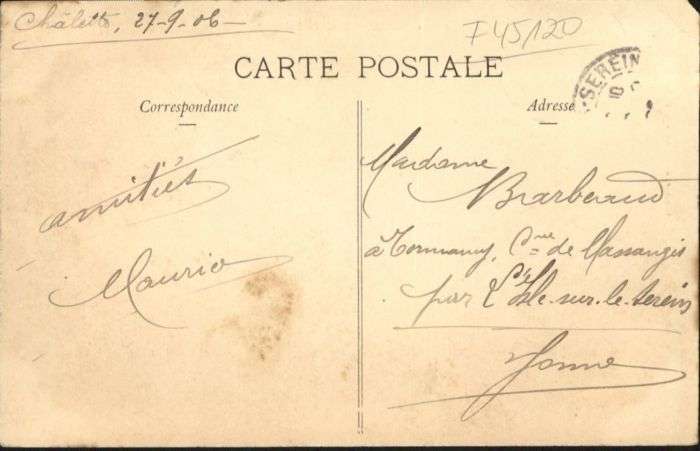 Châlette, 27-9-06-
F45/120
CARTE POSTALE
Correspondance
Adresse
SEREIN
10
amitiés
Maurice
Madame
Barbeaud
à Tormancy, Cne de Massangis
par L'Isle-sur-le-Serein
Yonne